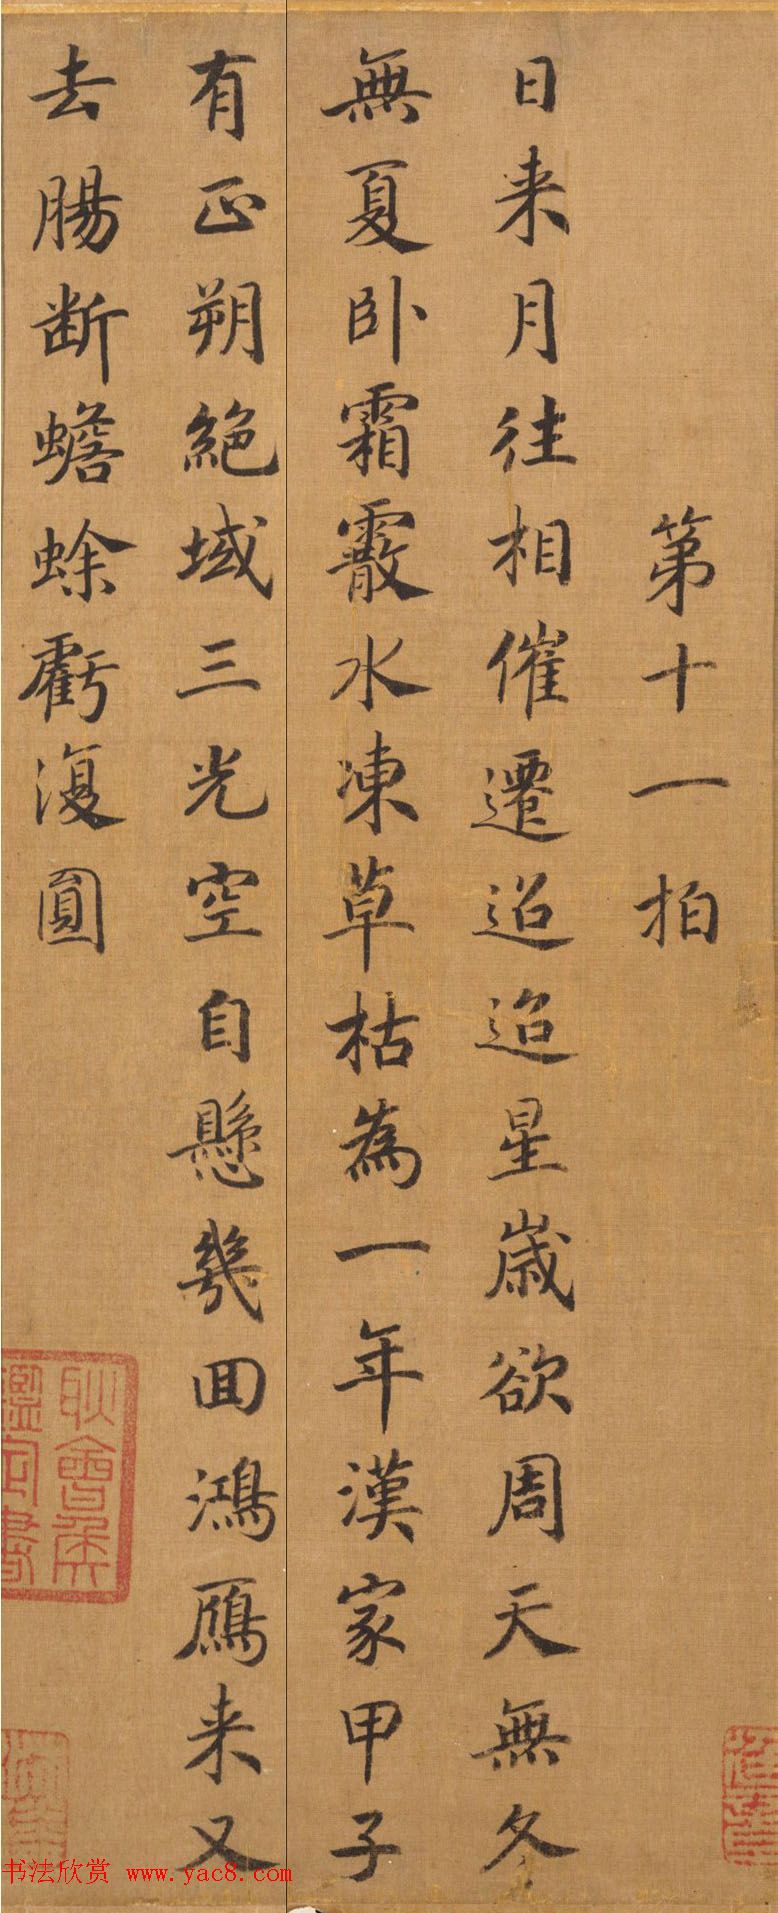 第十一拍
日来月往相催遷迢迢星歲欲周天無冬
無夏卧霜霰水凍草枯為一年漢家甲子
有正朔絕域三光空自懸幾回鴻鴈来又
去腸断蟾蜍虧復圓
书法欣赏 www.yac8.com